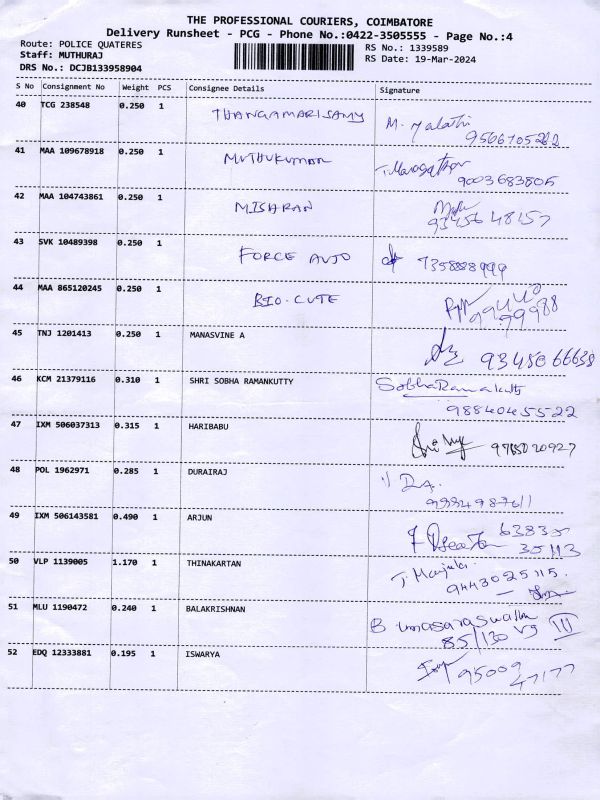 THE PROFESSIONAL COURIERS, COIMBATORE
Delivery Runsheet - PCG - Phone No.:0422-3505555 - Page No.:4
Route: POLICE QUATERES
Staff: MUTHURAJ
DRS No.: DCJB133958904
RS No.: 1339589
RS Date: 19-Mar-2024
S No Consignment No Weight PCS Consignee Details Signature
40 TCG 238548 0.250 1 THANGAMARISAMY M. Malathi
9566705262
41 MAA 109678918 0.250 1 MUTHUKUMAR
9003683805
42 MAA 104743861 0.250 1 MISHRAN
9345648157
43 SVK 10489398 0.250 1 FORCE AUTO 7358888999
44 MAA 865120245 0.250 1 BIO-CUTE 99440
99988
45 TNJ 1201413 0.250 1 MANASVINE A 9345066638
46 KCM 21379116 0.310 1 SHRI SOBHA RAMANKUTTY SobhaRamakutty
9884045522
47 IXM 506037313 0.315 1 HARIBABU
48 POL 1962971 0.285 1 DURAIRAJ
49 IXM 506143581 0.490 1 ARJUN 63835
35113
50 VLP 1139005 1.170 1 THINAKARTAN T. Manjula
9443025115.
51 MLU 1190472 0.240 1 BALAKRISHNAN B umasaraswathi
85/130 VJ III
52 EDQ 12333881 0.195 1 ISWARYA 95009
47177